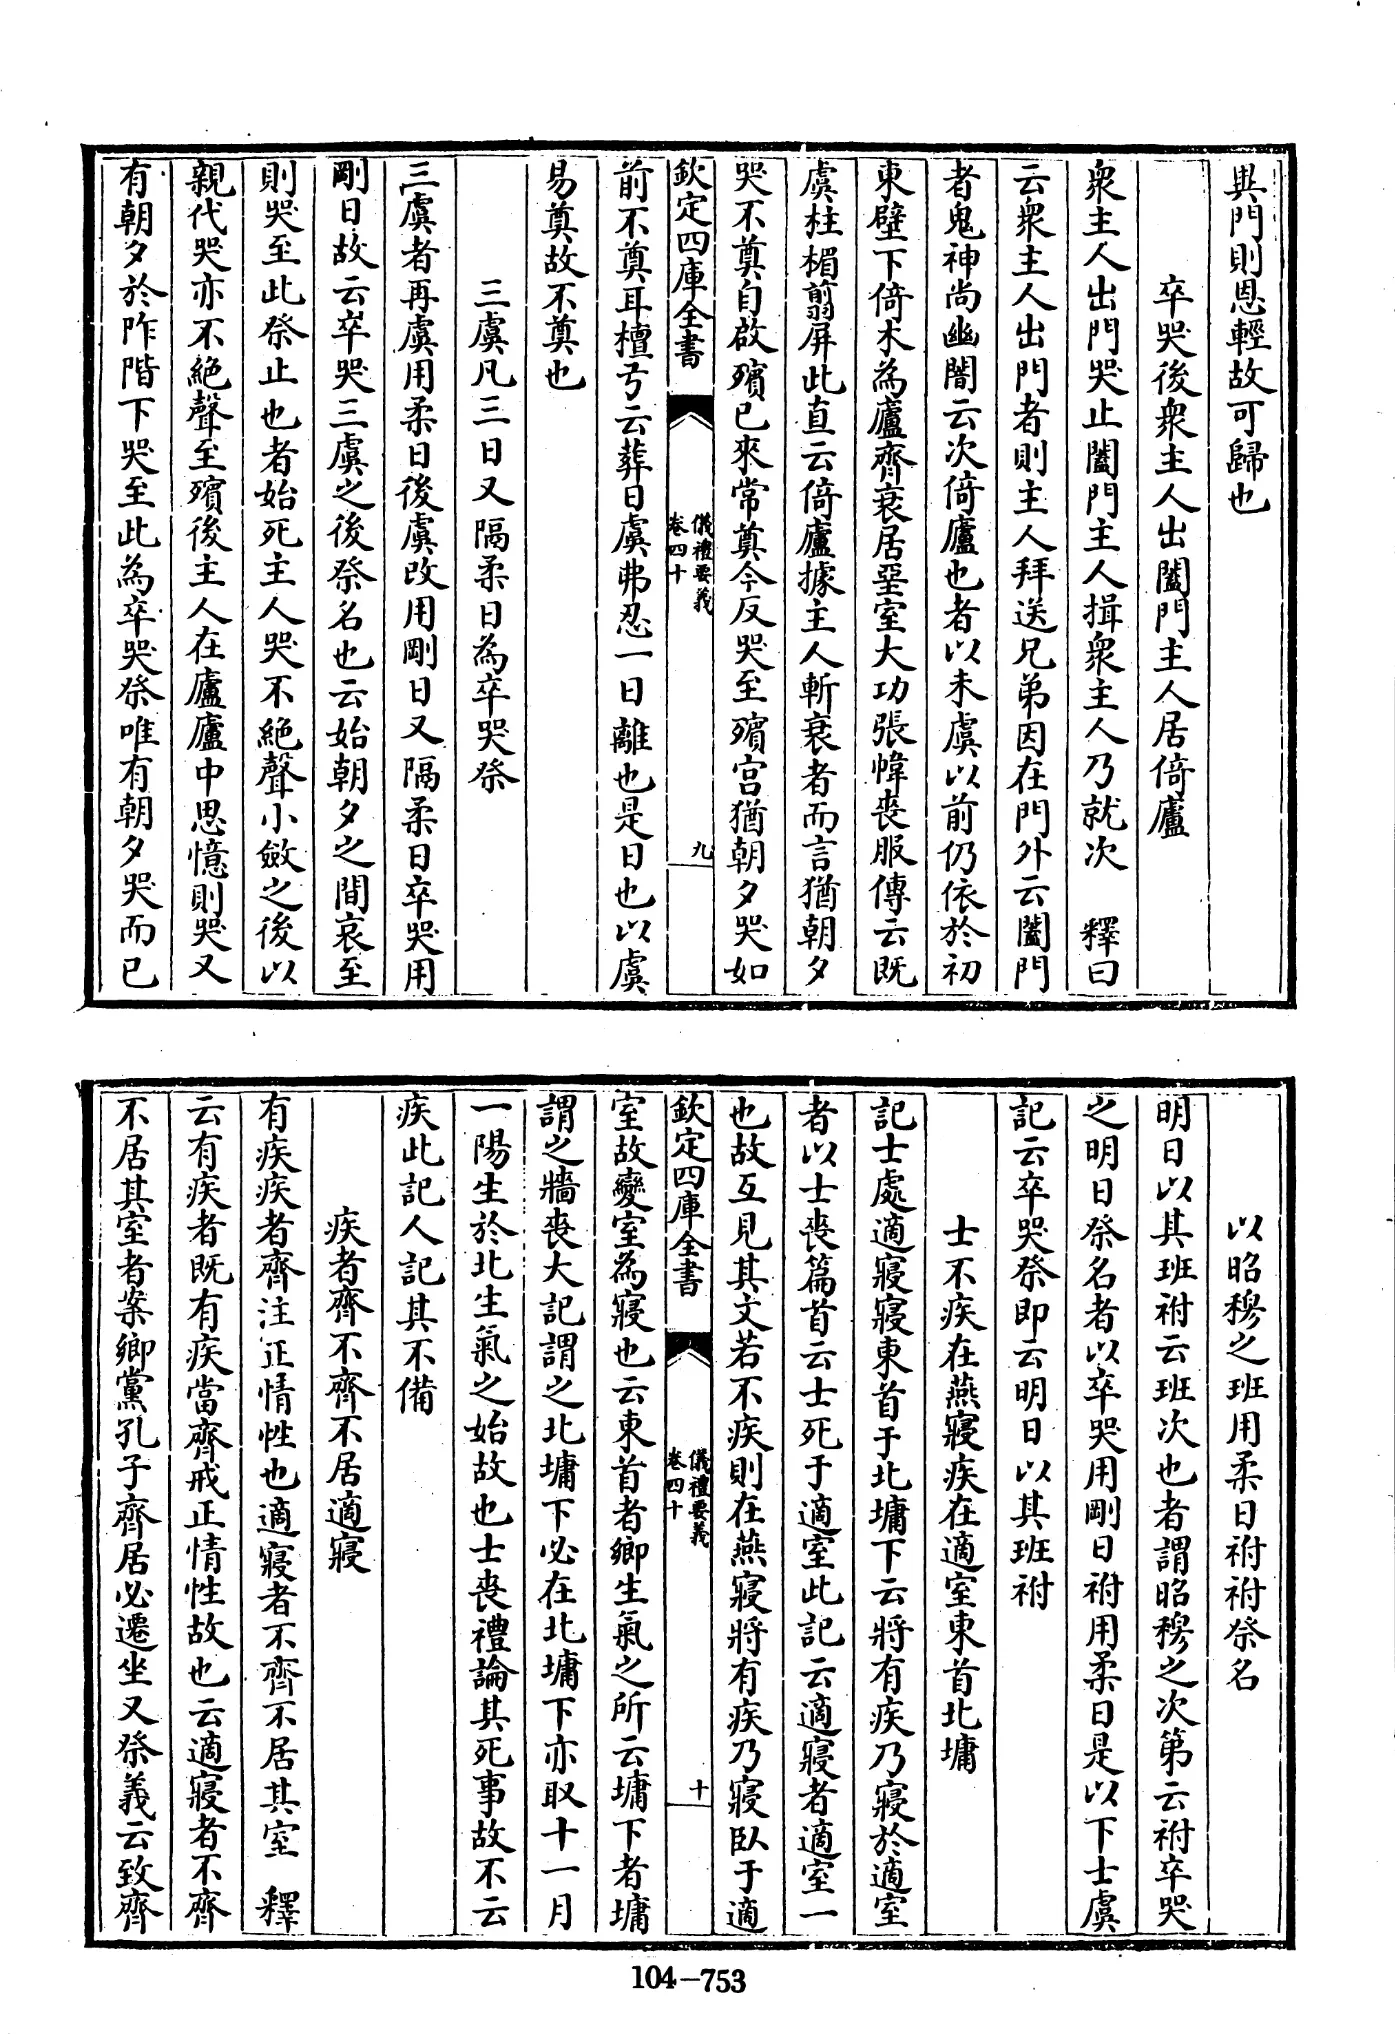 與門則恩輕故可歸也
卒哭後衆主人出闔門主人居倚廬
衆主人出門哭止闔門主人揖衆主人乃就次　釋曰
云衆主人出門者則主人拜送兄弟因在門外云闔門
者鬼神尚幽闇云次倚廬也者以未虞以前仍依於初
東壁下倚木為廬齊衰居堊室大功張幃喪服傳云既
虞柱楣翦屏此直云倚廬據主人斬衰者而言猶朝夕
哭不奠自啟殯已來常奠今反哭至殯宮猶朝夕哭如
欽定四庫全書
儀禮要義
卷四十
九
前不奠耳檀弓云葬日虞弗忍一日離也是日也以虞
易奠故不奠也
三虞凡三日又隔柔日為卒哭祭
三虞者再虞用柔日後虞改用剛日又隔柔日卒哭用
剛日故云卒哭三虞之後祭名也云始朝夕之間哀至
則哭至此祭止也者始死主人哭不絶聲小斂之後以
親代哭亦不絶聲至殯後主人在廬廬中思憶則哭又
有朝夕於阼階下哭至此為卒哭祭唯有朝夕哭而已
以昭穆之班用柔日祔祔祭名
明日以其班祔云班次也者謂昭穆之次第云祔卒哭
之明日祭名者以卒哭用剛日祔用柔日是以下士虞
記云卒哭祭即云明日以其班祔
士不疾在燕寢疾在適室東首北墉
記士處適寢寢東首于北墉下云將有疾乃寢於適室
者以士喪篇首云士死于適室此記云適寢者適室一
也故互見其文若不疾則在燕寢將有疾乃寢臥于適
欽定四庫全書
儀禮要義
卷四十
十
室故變室為寢也云東首者鄉生氣之所云墉下者墉
謂之牆喪大記謂之北墉下必在北墉下亦取十一月
一陽生於北生氣之始故也士喪禮論其死事故不云
疾此記人記其不備
疾者齊不齊不居適寢
有疾疾者齊注正情性也適寢者不齊不居其室　釋
云有疾者既有疾當齊戒正情性故也云適寢者不齊
不居其室者案鄉黨孔子齊居必遷坐又祭義云致齊
104-753